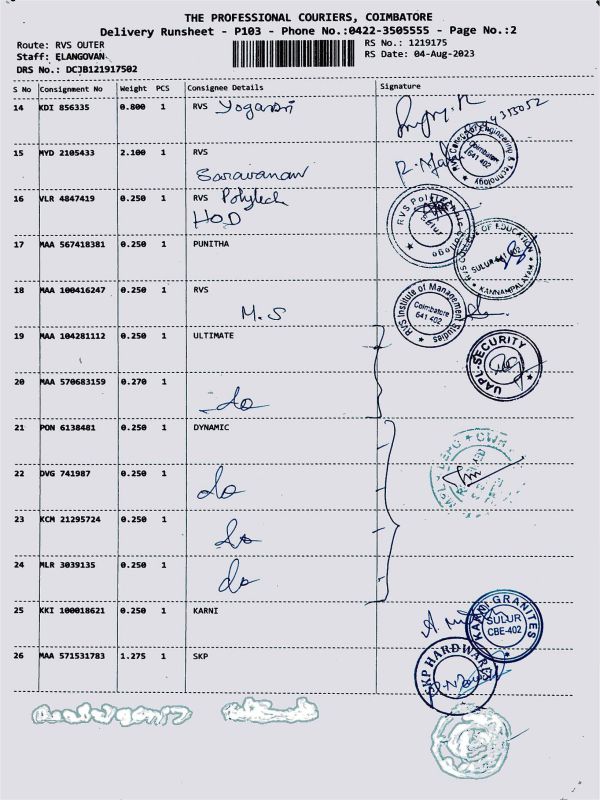 THE PROFESSIONAL COURIERS, COIMBATORE
Delivery Runsheet - P103 - Phone No.:0422-3505555 - Page No.:2
Route: RVS OUTER RS No.: 1219175
Staff: ELANGOVAN RS Date: 04-Aug-2023
DRS No.: DCJB121917502
S No Consignment No Weight PCS Consignee Details Signature
14 KDI 856335 0.800 1 RVS
15 MYD 2105433 2.100 1 RVS
RVS College of Engineering & Technology Coimbatore 641 402
Saravanan
16 VLR 4847419 0.250 1 RVS Polytech
HOD
RVS Polytechnic College Sulur
17 MAA 567418381 0.250 1 PUNITHA
RVS COLLEGE OF EDUCATION SULUR-641 402 KANNAMPALAYAM
18 MAA 100416247 0.250 1 RVS
M.S
RVS Institute of Management Studies Coimbatore 641 402
19 MAA 104281112 0.250 1 ULTIMATE
UAPL-SECURITY
20 MAA 570683159 0.270 1
do
21 PON 6138481 0.250 1 DYNAMIC
22 DVG 741987 0.250 1
do
23 KCM 21295724 0.250 1
do
24 MLR 3039135 0.250 1
do
25 KKI 100018621 0.250 1 KARNI
KARNI GRANITES SULUR CBE-402
26 MAA 571531783 1.275 1 SKP
SKP HARDWARE